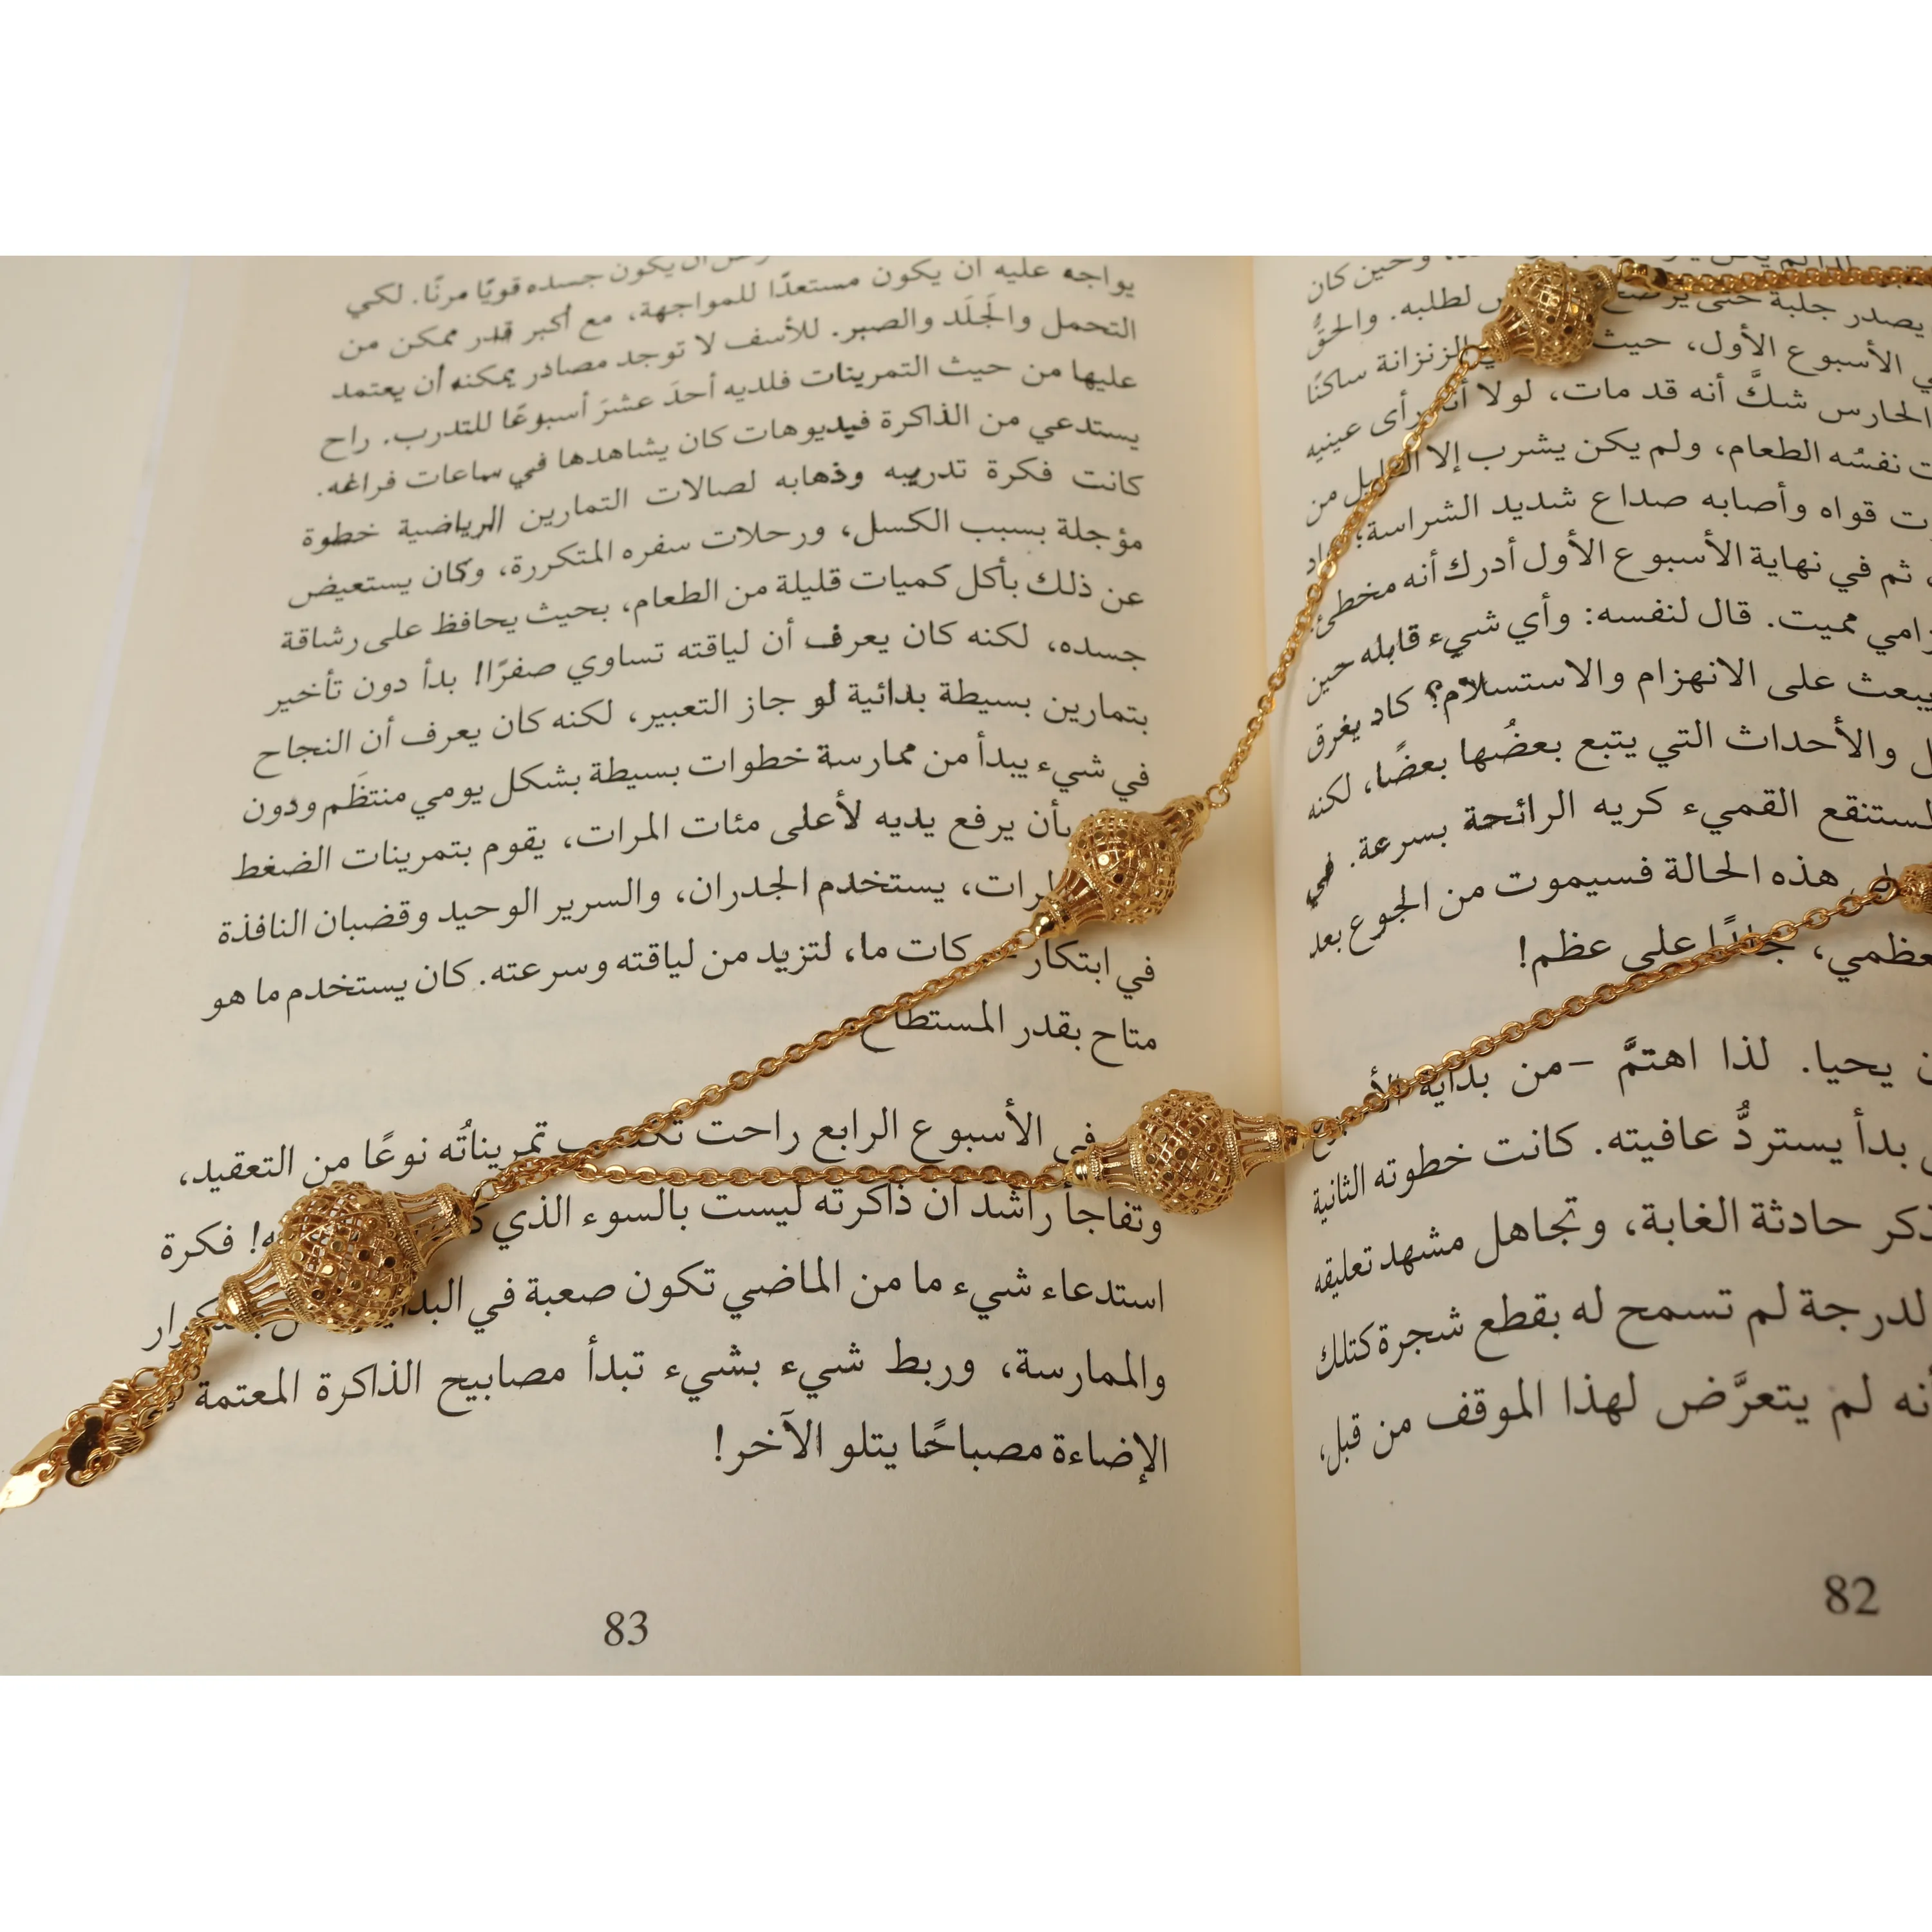 وحين كان
يصدر جلبة حتى لطلبه. والحقُّ
الأسبوع الأول، حيث الزنزانة ساكنًا
الحارس شكَّ أنه قد مات، لولا رأى عينيه
نفسُه الطعام، ولم يكن يشرب إلا القليل من
قواه وأصابه صداع شديد الشراسة؛
ثم في نهاية الأسبوع الأول أدرك أنه مخطئ
مميت. قال لنفسه: وأي شيء قابله حين
يبعث على الانهزام والاستسلام؟ كاد يغرق
والأحداث التي يتبع بعضُها بعضًا، لكنه
القميء كريه الرائحة بسرعة. في
هذه الحالة فسيموت من الجوع بعد
جلدًا على عظم!
يحيا. لذا اهتمَّ -من بداية
بدأ يستردُّ عافيته. كانت خطوته الثانية
حادثة الغابة، وتجاهل مشهد تعليقه
لدرجة لم تسمح له بقطع شجرة كتلك
لم يتعرَّض لهذا الموقف من قبل،
82
أن يكون جسده قويًا مرنًا. لكي
يواجه عليه أن يكون مستعدًا للمواجهة، مع أكبر قدر ممكن من
التحمل والجَلَد والصبر. للأسف لا توجد مصادر يمكنه أن يعتمد
عليها من حيث التمرينات فلديه أحدَ عشرَ أسبوعًا للتدرب. راح
يستدعي من الذاكرة فيديوهات كان يشاهدها في ساعات فراغه.
كانت فكرة تدريبه وذهابه لصالات التمارين الرياضية خطوة
مؤجلة بسبب الكسل، ورحلات سفره المتكررة، وكان يستعيض
عن ذلك بأكل كميات قليلة من الطعام، بحيث يحافظ على رشاقة
جسده، لكنه كان يعرف أن لياقته تساوي صفرًا! بدأ دون تأخير
بتمارين بسيطة بدائية لو جاز التعبير، لكنه كان يعرف أن النجاح
في شيء يبدأ من ممارسة خطوات بسيطة بشكل يومي منتظَم ودون
بأن يرفع يديه لأعلى مئات المرات، يقوم بتمرينات الضغط
يستخدم الجدران، والسرير الوحيد وقضبان النافذة
في ابتكار ما، لتزيد من لياقته وسرعته. كان يستخدم ما هو
متاح بقدر المستطاع
في الأسبوع الرابع راحت تمريناتُه نوعًا من التعقيد،
وتفاجأ راشد أن ذاكرته ليست بالسوء الذي فكرة
استدعاء شيء ما من الماضي تكون صعبة في
والممارسة، وربط شيء بشيء تبدأ مصابيح الذاكرة المعتمة
الإضاءة مصباحًا يتلو الآخر!
83